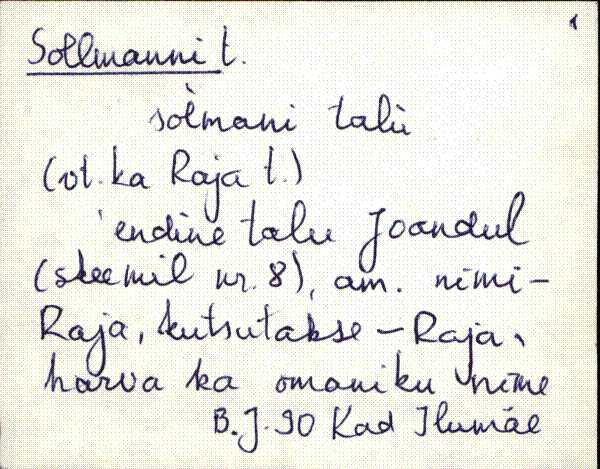 Sollmanni t.
sòlmani talù
(vt. ka Raja t.)
'endine talu Joandul
(skeemil nr. 8), am. nimi–
Raja, kutsutakse – Raja,
harva ka omaniku nime
B.J. 90 Kad Ilumäe